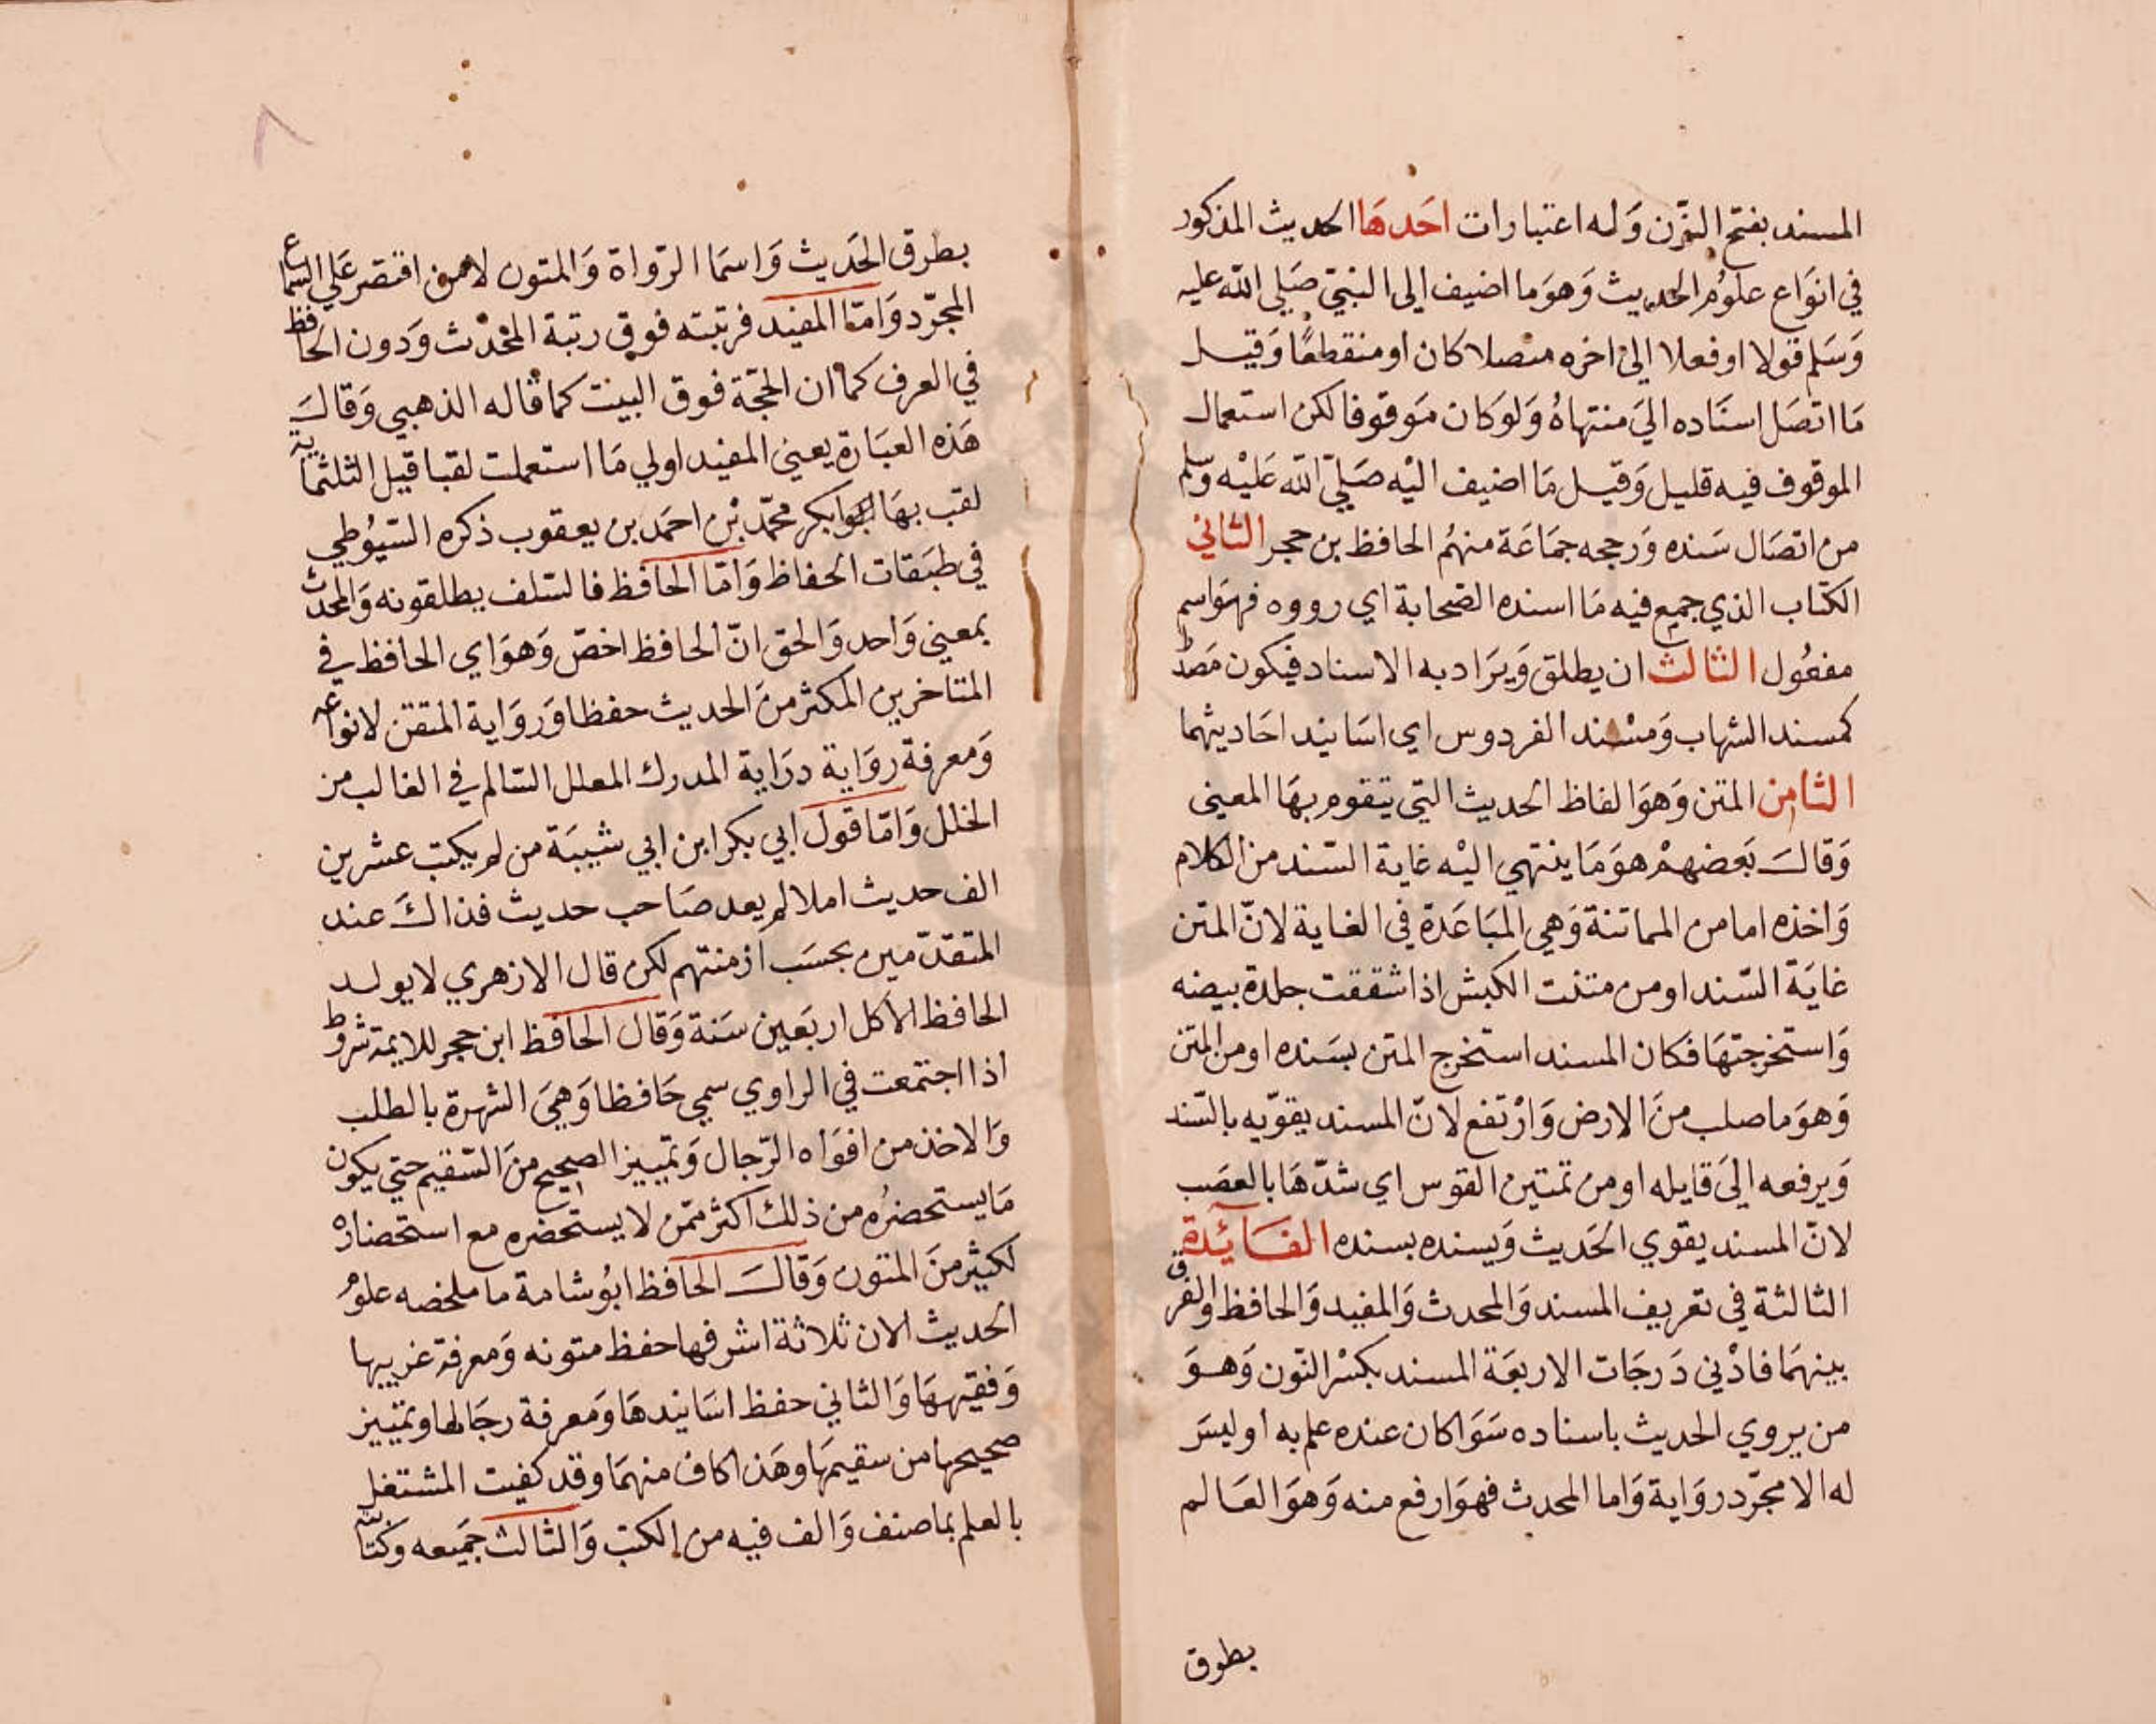 المسند بفتح النون وَله اعتبارات احَدهَا الحديث المذكور
في انوَاع علوُم الحديث وَهوَ ما اضيف الى النبيّ صَلي الله عليه
وَسَلم قولا او فعلا الىٰ اخره متصلا كان او منقطعًا وَقيل
مَا اتصَل اسنَاده الىَ منتهاهُ وَلوَ كان مَوقوفا لكن استعمال
الموقوف فيه قليل وَقيل مَا اضيف اليْه صَليّ الله عَليْه وَسلم
من اتصَال سَنده وَرجحه جمَاعَة منهُم الحافظ بن حجر الثاني
الكتاب الذي جمع فيه مَا اسنده الصّحابة اي رووه فهوَ اسم
مفعُول الثالث ان يطلق وَيرَاد به الاسناد فيكون مَصدرا
كمسند الشهاب وَمسْند الفردوس اي اسَانيد احَاديثهما
الثامن المتن وَهوَ الفاظ الحديث التي يتقوم بهَا المعنى
وَقالَ بَعضهمْ هوَ مَا ينتهي اليْه غاية السّند من الكلام
وَاخذه اما من المماتنة وَهي المبَاعَدة في الغاية لانّ المتن
غايَة السّند او من متنت الكبش اذا شققت جلدة بيضه
وَاستخرجتهَا فكان المسند استخرج المتن بسَنده او من المتن
وَهوَ ما صلب منَ الارض وَارْتفع لانّ المسند يقوّيه بالسّند
وَيرفعه الىَ قايله او من تمتين القوس اي شدّهَا بالعصَب
لانّ المسند يقوي الحَديث وَيسنده بسنده الفَائِدة
الثالثة في تعريف المسند وَالمحدث وَالمفيد وَالحافظ وَالفرق
بينهمَا فادْني دَرجَات الاربعَة المسند بكسْر النّون وَهوَ
من يروي الحديث باسناده سَوَا كان عنده علم به أو ليسَ
له الا مجرّد روَاية وَاما المحدث فهوَ ارفع منه وَهوَ العَالم
بطرق
٨
بطرق الحَديث وَاسمَا الرّواة وَالمتون لا من اقتصر عَلي السماع
المجرّد وَامّا المفيد فرتبته فوق رتبة المحْدّث وَدون الحافظ
في العرف كما ان الحجّة فوق البيت كما قاله الذهبي وَقالَ
هَذه العبَارة يعني المفيد اولي مَا استعملت لقبا قبل الثلثماية
لقب بهَا ابوا بكر محمّد بْن احمَد بن يعقوب ذكره السّيوُطي
في طبَقات الحفاظ وَامّا الحافظ فالسّلف يطلقونه وَالمحدث
بمعني وَاحد وَالحق انّ الحافظ اخصّ وَهوَ اي الحافظ في
المتاخرين المكثر منَ الحديث حفظا وَروَاية المتقن لانواعه
وَمعرفة روَاية دِرَاية المدرك المعلل السّالم في الغالب من
الخلل وَامّا قول ابي بكر ابن ابي شيبَة من لم يكتب عشرين
الف حديث املا لم يعد صَاحب حديث فذاكَ عند
المتقدّمين بحسَب ازمنتهم لكن قال الازهري لا يولد
الحافظ الا كل اربَعين سَنة وَقال الحافظ ابن حجر للايمة شروط
اذا اجتمعت في الراوي سمي حَافظا وَهيَ الشهرة بالطلب
وَالاخذ من افوَاه الرّجال وَتمييز الصحيح منَ السّقيم حتي يكون
مَا يستحضرُه من ذلك اكثر ممّن لا يستحضره مع استحضاره
لكثير منَ المتون وَقالَ الحافظ ابُو شامة ما ملخصه علوُم
الحديث الان ثلاثة اشرفها حفظ متونه وَمعرفة غريبها
وَفقيههَا وَالثاني حفظ اسَانيدهَا وَمَعرفة رجَالها وتمييز
صحيحها من سقيمهَا وهَذا كاف منهمَا وقد كفيت المشتغل
بالعلم بما صنف وَالف فيه من الكتب وَالثالث جَميعه وكتابته